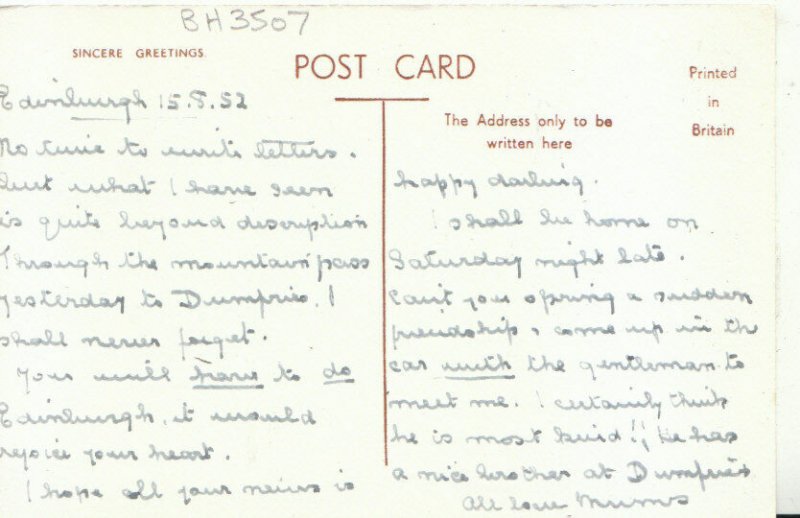 BH3507
SINCERE GREETINGS.
POST CARD
Printed
in
Britain
The Address only to be
written here
Edinburgh 15.5.52
No time to write letters.
But what I have seen
is quite beyond description
Through the mountain pass
yesterday to Dumfries. I
shall never forget.
You will have to do
Edinburgh, it would
rejoice your heart.
I hope all your news is
happy darling.
I shall be home on
Saturday night late.
Can't you spring a sudden
friendship, & come up in the
car with the gentleman to
meet me. I certainly think
he is most kind!! He has
a nice brother at Dumfries
All love Mums